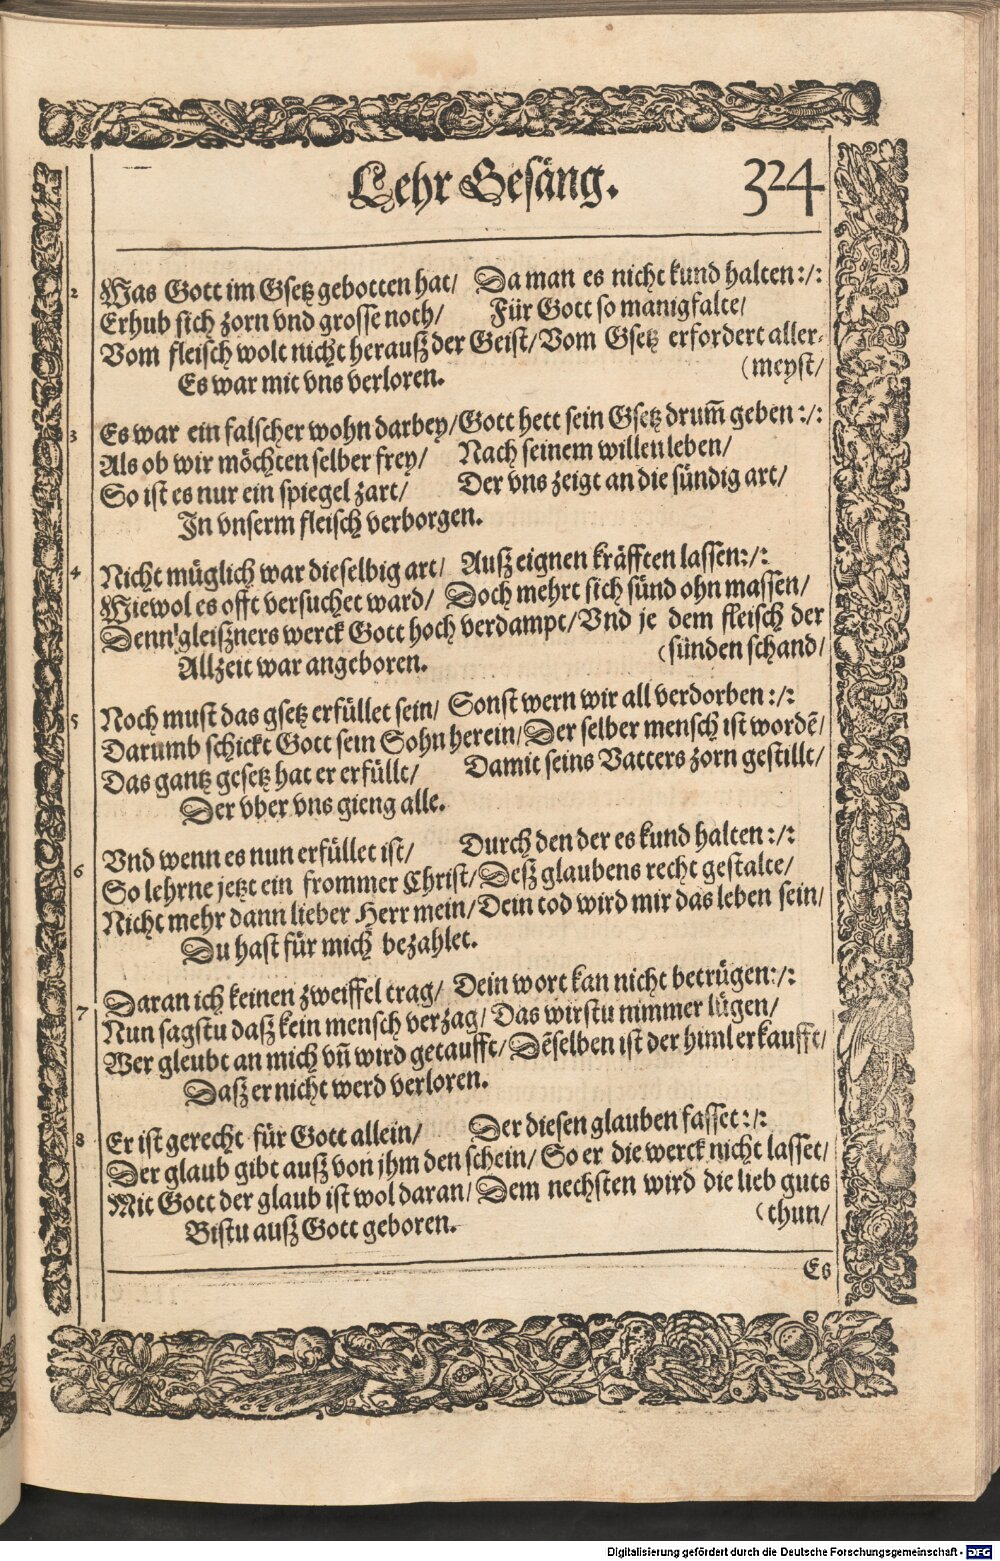 Lehr Gesäng. 324
2 Was Gott im Gsetz gebotten hat/ Da man es nicht kund halten:/:
Erhub sich zorn vnd grosse noth/ Für Gott so manigfalte/
Vom fleisch wolt nicht herauß der Geist/ Vom Gsetz erfordert aller-
(meyst/
Es war mit vns verloren.
3 Es war ein falscher wohn darbey/ Gott hett sein Gsetz drum̃ geben:/:
Als ob wir möchten selber frey/ Nach seinem willen leben/
So ist es nur ein spiegel zart/ Der vns zeigt an die sündig art/
In vnserm fleisch verborgen.
4 Nicht müglich war dieselbig art/ Auß eignen kräfften lassen:/:
Wiewol es offt versuchet ward/ Doch mehrt sich sünd ohn massen/
Denn gleißners werck Gott hoch verdampt/ Vnd je dem fleisch der
(sünden schand/
Allzeit war angeboren.
5 Noch must das gsetz erfüllet sein/ Sonst wern wir all verdorben:/:
Darumb schickt Gott sein Sohn herein/ Der selber mensch ist wordẽ/
Das gantz gesetz hat er erfüllt/ Damit seins Vatters zorn gestillt/
Der vber vns gieng alle.
6 Vnd wenn es nun erfüllet ist/ Durch den der es kund halten:/:
So lehrne jetzt ein frommer Christ/ Deß glaubens recht gestalte/
Nicht mehr dann lieber Herr mein/ Dein tod wird mir das leben sein/
Du hast für mich bezahlet.
7 Daran ich keinen zweiffel trag/ Dein wort kan nicht betrügen:/:
Nun sagstu daß kein mensch verzag/ Das wirstu nimmer lügen/
Wer gleubt an mich vñ wird getaufft/ Dẽselben ist der him̃l erkaufft/
Daß er nicht werd verloren.
8 Er ist gerecht für Gott allein/ Der diesen glauben fasset:/:
Der glaub gibt auß von jhm den schein/ So er die werck nicht lasset/
Mit Gott der glaub ist wol daran/ Dem nechsten wird die lieb guts
(thun/
Bistu auß Gott geboren.
Es
Digitalisierung gefördert durch die Deutsche Forschungsgemeinschaft - DFG